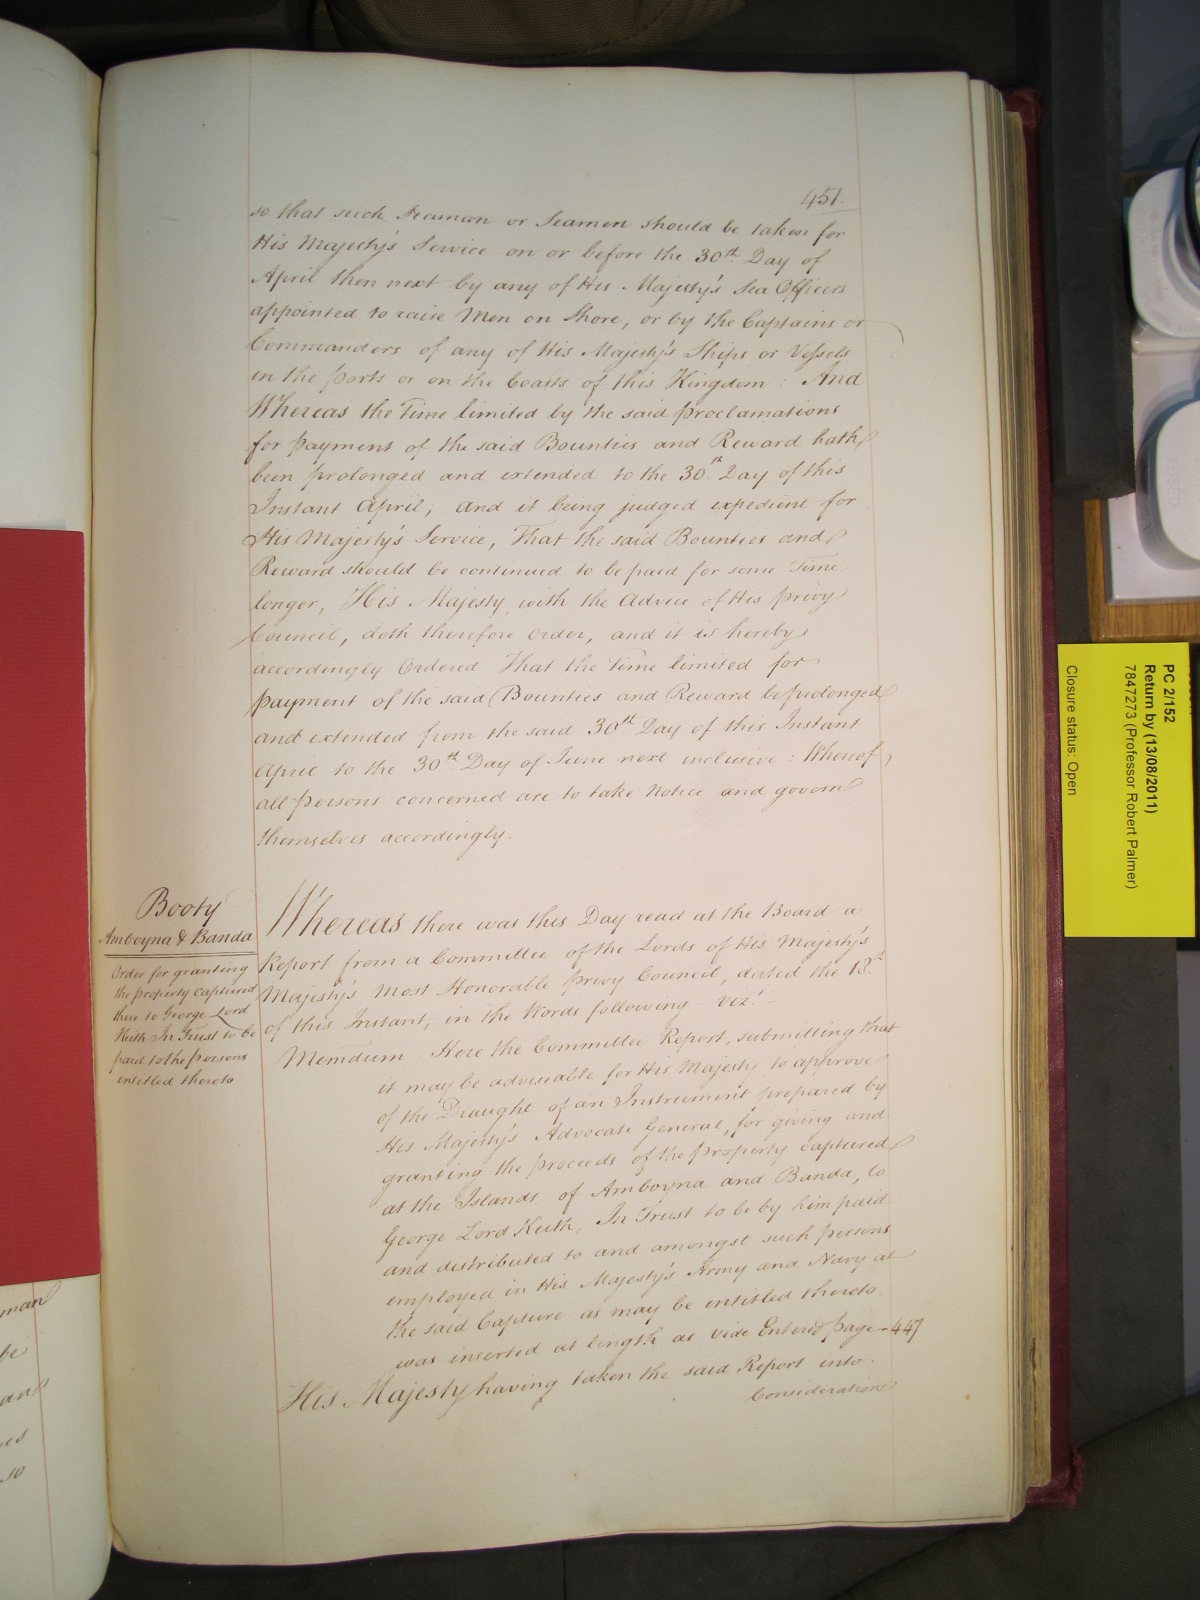 451.
so that such Seaman or Seamen should be taken for
His Majesty's Service on or before the 30th. Day of
April then next by any of His Majesty's Sea Officers
appointed to raise Men on Shore, or by the Captains or
Commanders of any of His Majesty's Ships or Vessels
in the ports or on the Coasts of this Kingdom: And
Whereas the Time limited by the said proclamations
for payment of the said Bounties and Reward hath
been prolonged and extended to the 30th. Day of this
Instant April, and it being judged expedient for
His Majesty's Service, That the said Bounties and
Reward should be continued to be paid for some Time
longer, His Majesty, with the Advice of His privy
Council, doth therefore order, and it is hereby
accordingly Ordered That the Time limited for
payment of the said Bounties and Reward be prolonged
and extended from the said 30th. Day of this Instant
April to the 30th Day of June next inclusive: Whereof
all persons concerned are to take Notice and govern
themselves accordingly.
Booty
Amboyna & Banda
Order for granting
the property captured
there to George Lord
Keith In Trust to be
paid to the persons
entitled thereto
Whereas there was this Day read at the Board a
Report from a Committee of the Lords of His Majesty's
Majesty's Most Honorable privy Council, dated the 13th.
of this Instant, in the Words following - vizt. -
Memdum - Here the Committee Report, submitting that
it may be adviseable for His Majesty to approve
of the Draught of an Instrument prepared by
His Majesty's Advocate General, for giving and
granting the proceeds of the property captured
at the Islands of Amboyna and Banda, to
George Lord Keith, In Trust to be by him paid
and distributed to and amongst such persons
employed in His Majesty's Army and Navy at
the said Capture as may be entitled thereto.
was inserted at length as vide Entered page - 447
His Majesty having taken the said Report into
Consideration
man
be
an
es
so
PC 2/152
Return by (13/08/2011)
7847273 (Professor Robert Palmer)
Closure status: Open